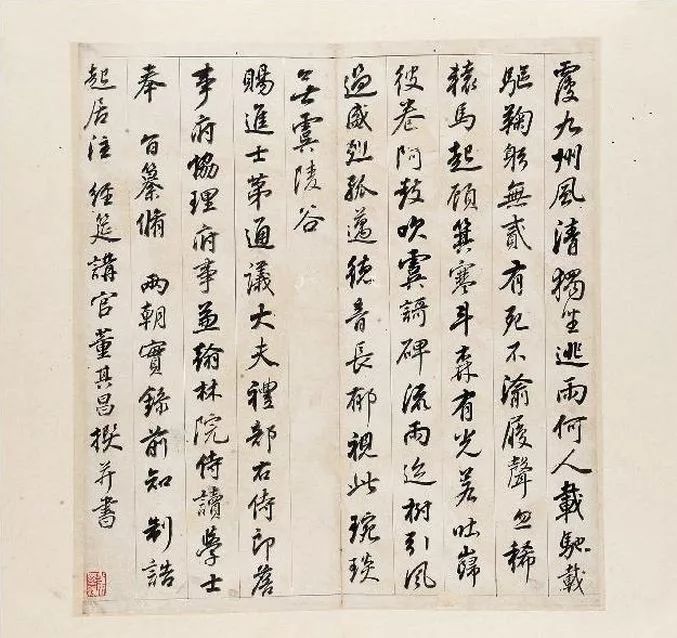 九州風清獨坐逃雨何人載馳載
驅鞠躬無貳有死不渝履聲忽稀
轅馬起顧箕寒斗森有光若吐歸
彼卷阿鼓吹虞謌碑流雨迄樹引風
過烈孤邁德音長郁視此琬琰
無虞陵谷
賜進士第通議大夫禮部右侍郎詹
事府協理府事兼翰林院侍讀學士
奉 旨纂脩 兩朝實錄前知 制誥
起居注 經筵講官董其昌撰并書